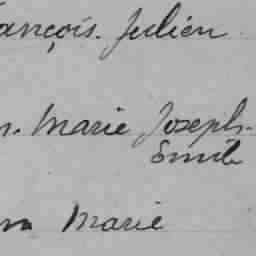 ançois. Julien
n. Marie Joseph.
Emile
Marie